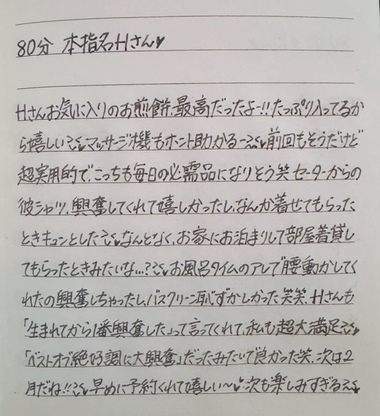 80分 本指名Hさん♥
Hさんお気に入りのお煎餅、最高だったよー!!たっぷり入ってるか
ら嬉しい♡マッサージ機もホント助かるー♡前回もそうだけど
超実用的で、こっちも毎日の必需品になりそう笑 セーターからの
彼シャツ、興奮してくれて嬉しかったし、なんか着せてもらった
ときキュンとした♡なんとなく、お家にお泊まりして部屋着貸し
てもらったときみたいな…?♡お風呂タイムのアレで腰動かしてく
れたの興奮しちゃったし、バスクリーン恥ずかしかった笑笑、Hさんも
「生まれてから1番興奮した」って言ってくれて、私も超大満足♡
「ベストオブ絶好調に大興奮」だったみたいで良かった笑、次は2
月だね!!♡早めに予約くれて嬉しい〜♥次も楽しみすぎるえ♡